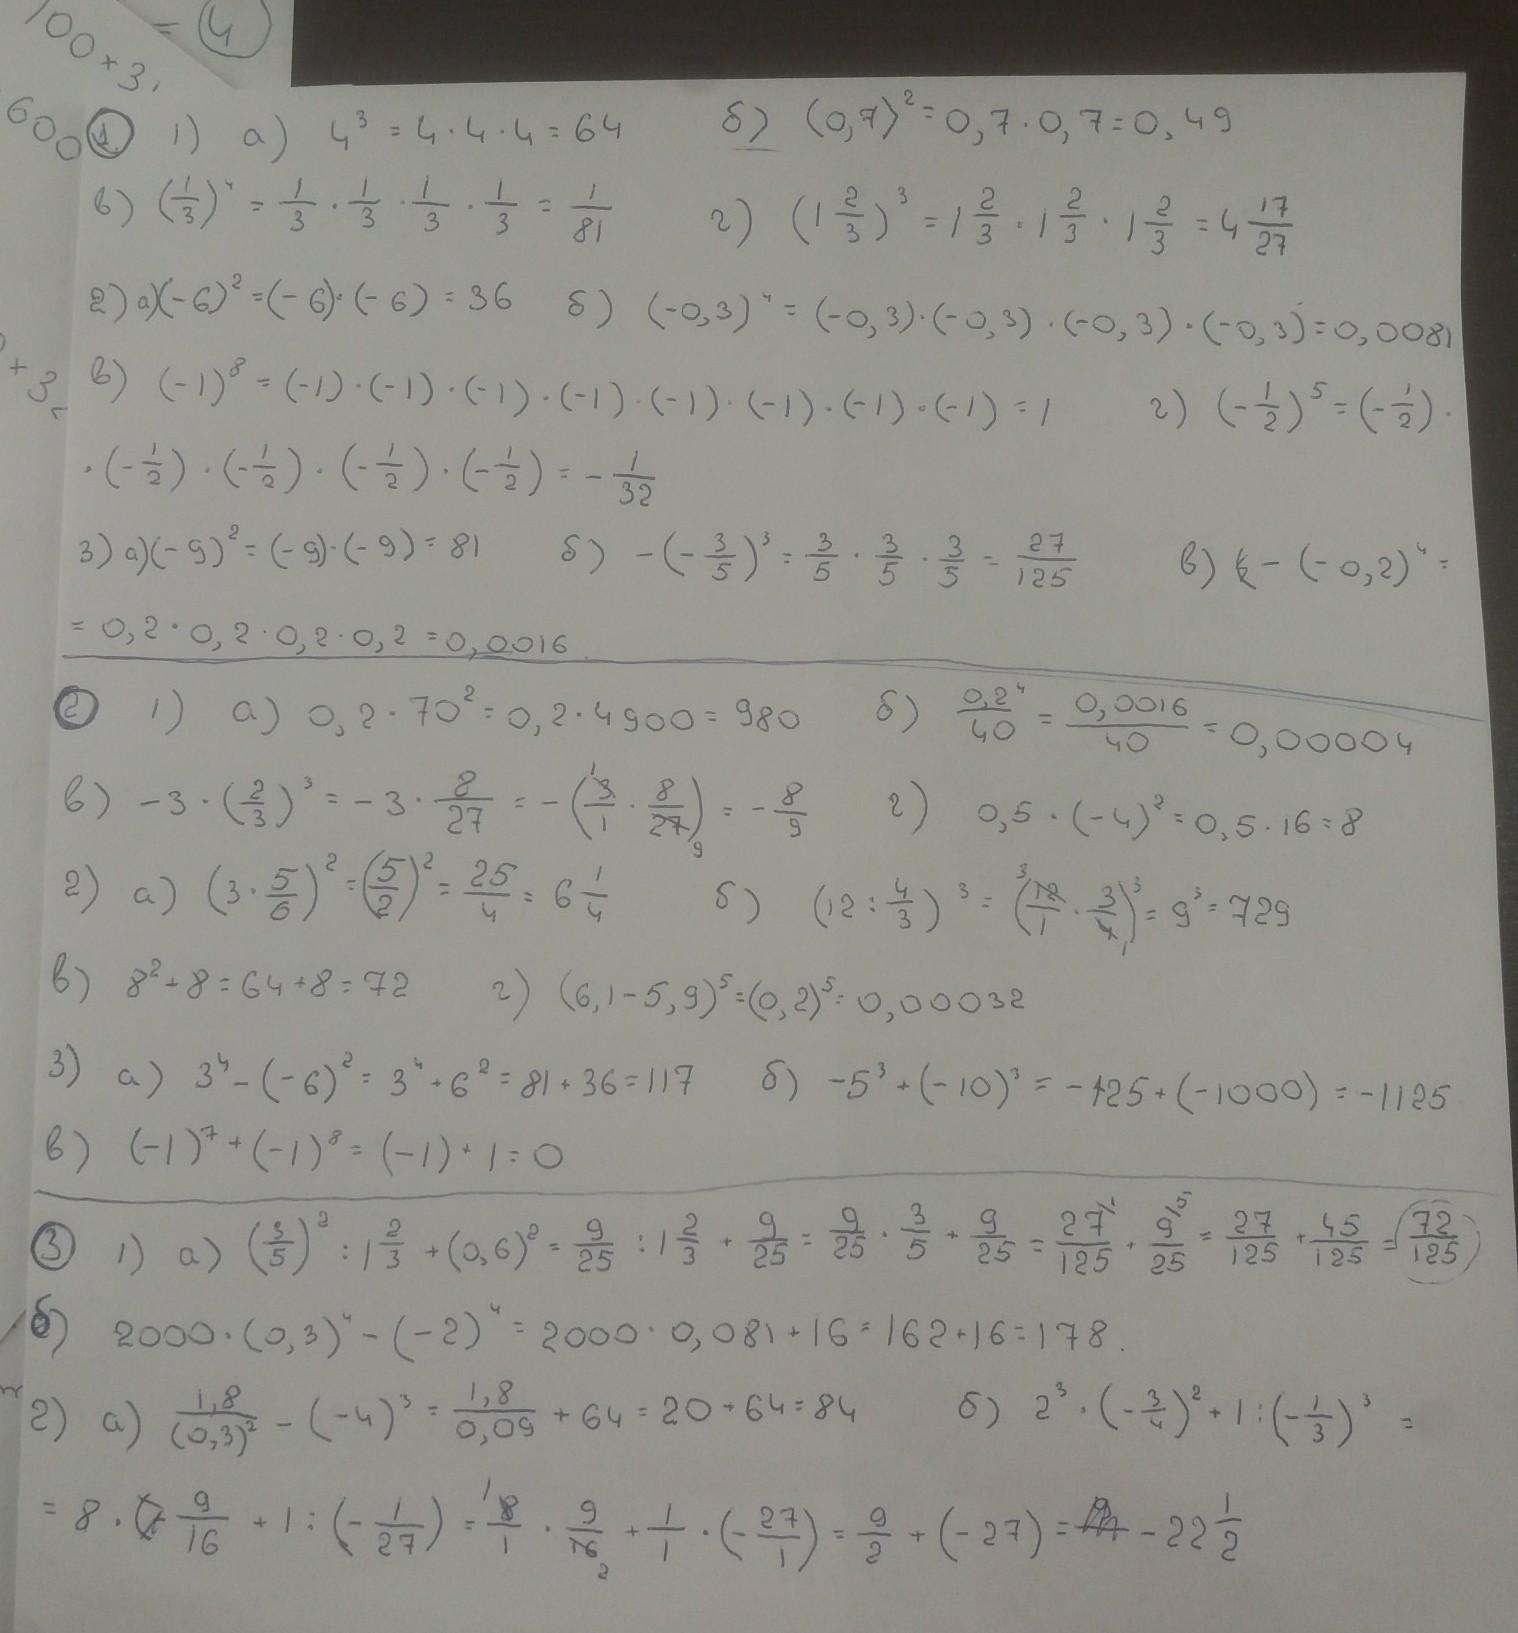 100+3,
= 4
600
1. 1) а) 4³ = 4·4·4 = 64 б) (0,7)² = 0,7·0,7 = 0,49
в) (1/3)⁴ = 1/3 · 1/3 · 1/3 · 1/3 = 1/81 г) (1 2/3)³ = 1 2/3 · 1 2/3 · 1 2/3 = 4 17/27
2) а) (-6)² = (-6)·(-6) = 36 б) (-0,3)⁴ = (-0,3)·(-0,3)·(-0,3)·(-0,3) = 0,0081
+3
в) (-1)⁸ = (-1)·(-1)·(-1)·(-1)·(-1)·(-1)·(-1)·(-1) = 1 г) (-1/2)⁵ = (-1/2)·
·(-1/2)·(-1/2)·(-1/2)·(-1/2) = -1/32
3) а) (-9)² = (-9)·(-9) = 81 б) -(-3/5)³ = 3/5 · 3/5 · 3/5 = 27/125 в) -(-0,2)⁴ =
= 0,2·0,2·0,2·0,2 = 0,0016
2 1) а) 0,2·70² = 0,2·4900 = 980 б) 0,2⁴/40 = 0,0016/40 = 0,00004
в) -3·(2/3)³ = -3·8/27 = -(3/1 · 8/27) = -8/9 г) 0,5·(-4)² = 0,5·16 = 8
2) а) (3·5/6)² = (5/2)² = 25/4 = 6 1/4 б) (12:4/3)³ = (12/1 · 3/4)³ = 9³ = 729
в) 8²+8 = 64+8 = 72 г) (6,1-5,9)⁵ = (0,2)⁵ = 0,00032
3) а) 3⁴-(-6)² = 3⁴+6² = 81+36 = 117 б) -5³+(-10)³ = -125+(-1000) = -1125
в) (-1)⁷+(-1)⁸ = (-1)+1 = 0
3 1) а) (3/5)² : 1 2/3 + (0,6)² = 9/25 : 1 2/3 + 9/25 = 9/25 · 3/5 + 9/25 = 27/125 + 9/25 = 27/125 + 45/125 = 72/125
б) 2000·(0,3)⁴-(-2)⁴ = 2000·0,081+16 = 162+16 = 178.
2) а) 1,8/(0,3)² - (-4)³ = 1,8/0,09 + 64 = 20+64 = 84 б) 2³·(-3/4)²+1:(-1/3)³ =
= 8· 9/16 + 1:(-1/27) = 8/1 · 9/16 + 1/1 · (-27/1) = 9/2 + (-27) = -22 1/2